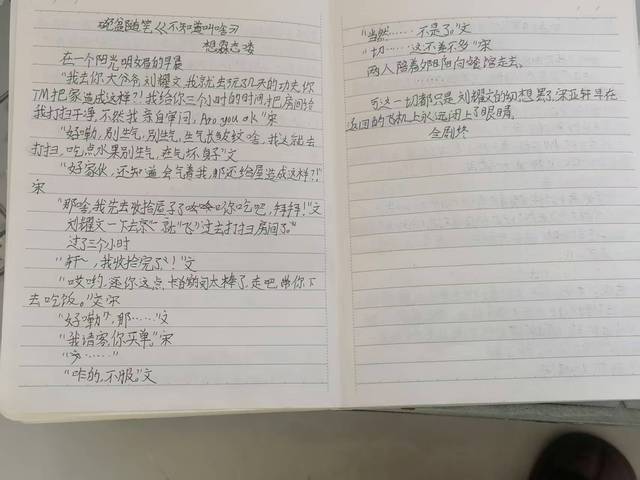 随笔《不知道叫啥》
在一个阳光明媚的早晨
"我去你大爷爷刘耀文，我就去玩了几天的功夫，你
TM把家造成这样?!我给你三个小时的时间，把房间给
我打扫干净，不然我亲自审问，Are you ok"宋
"好嘞，别生气，别生气，生气长皱纹啥，我这就去
打扫，吃点水果别生气，在气坏身子"文
"好家伙，还知道会气着我，那还给屋造成这样?!"
宋
"那啥，我先去收拾屋子了，你吃吧，拜拜!"文
刘耀文一下去就"飞"过去打扫房间了。
过了三个小时
"轩～，我收拾完了!"文
"哎哟，还你这点，太棒了，走吧，带你下
去吃饭。"宋
"好嘞，那……"文
"我请客，你买单。"宋
"……"
"咋的，不服。"文
"当然……不是了。"文
"切……这不差不多"宋
两人陪着夕阳向餐馆走去。
……
可这一切都只是刘耀文的幻想罢了，宋亚轩早在
返回的飞机上永远闭上了眼睛。
全剧终